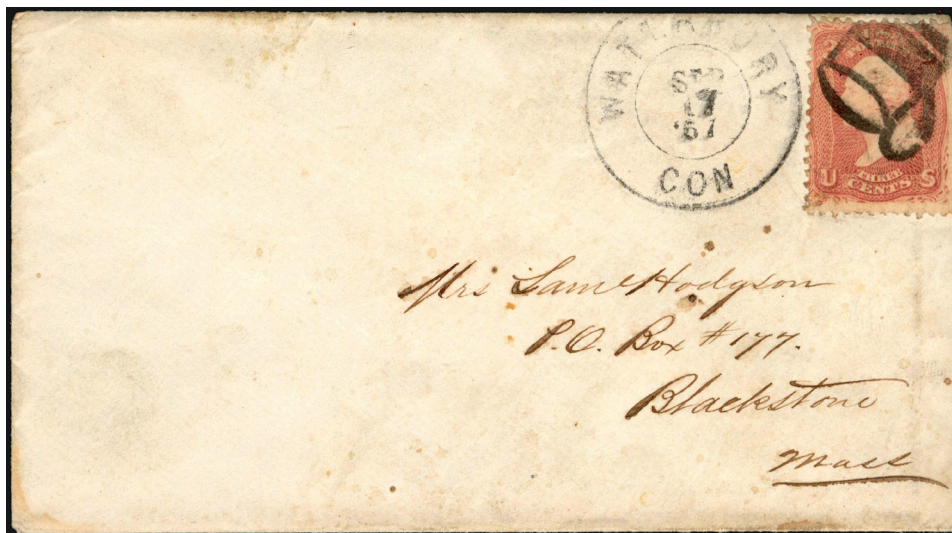 WATERBURY
SEP
17
'67
CON
THREE
U CENTS S
Mrs Saml Hodgson
P.O. Box #177.
Blackstone
Mass